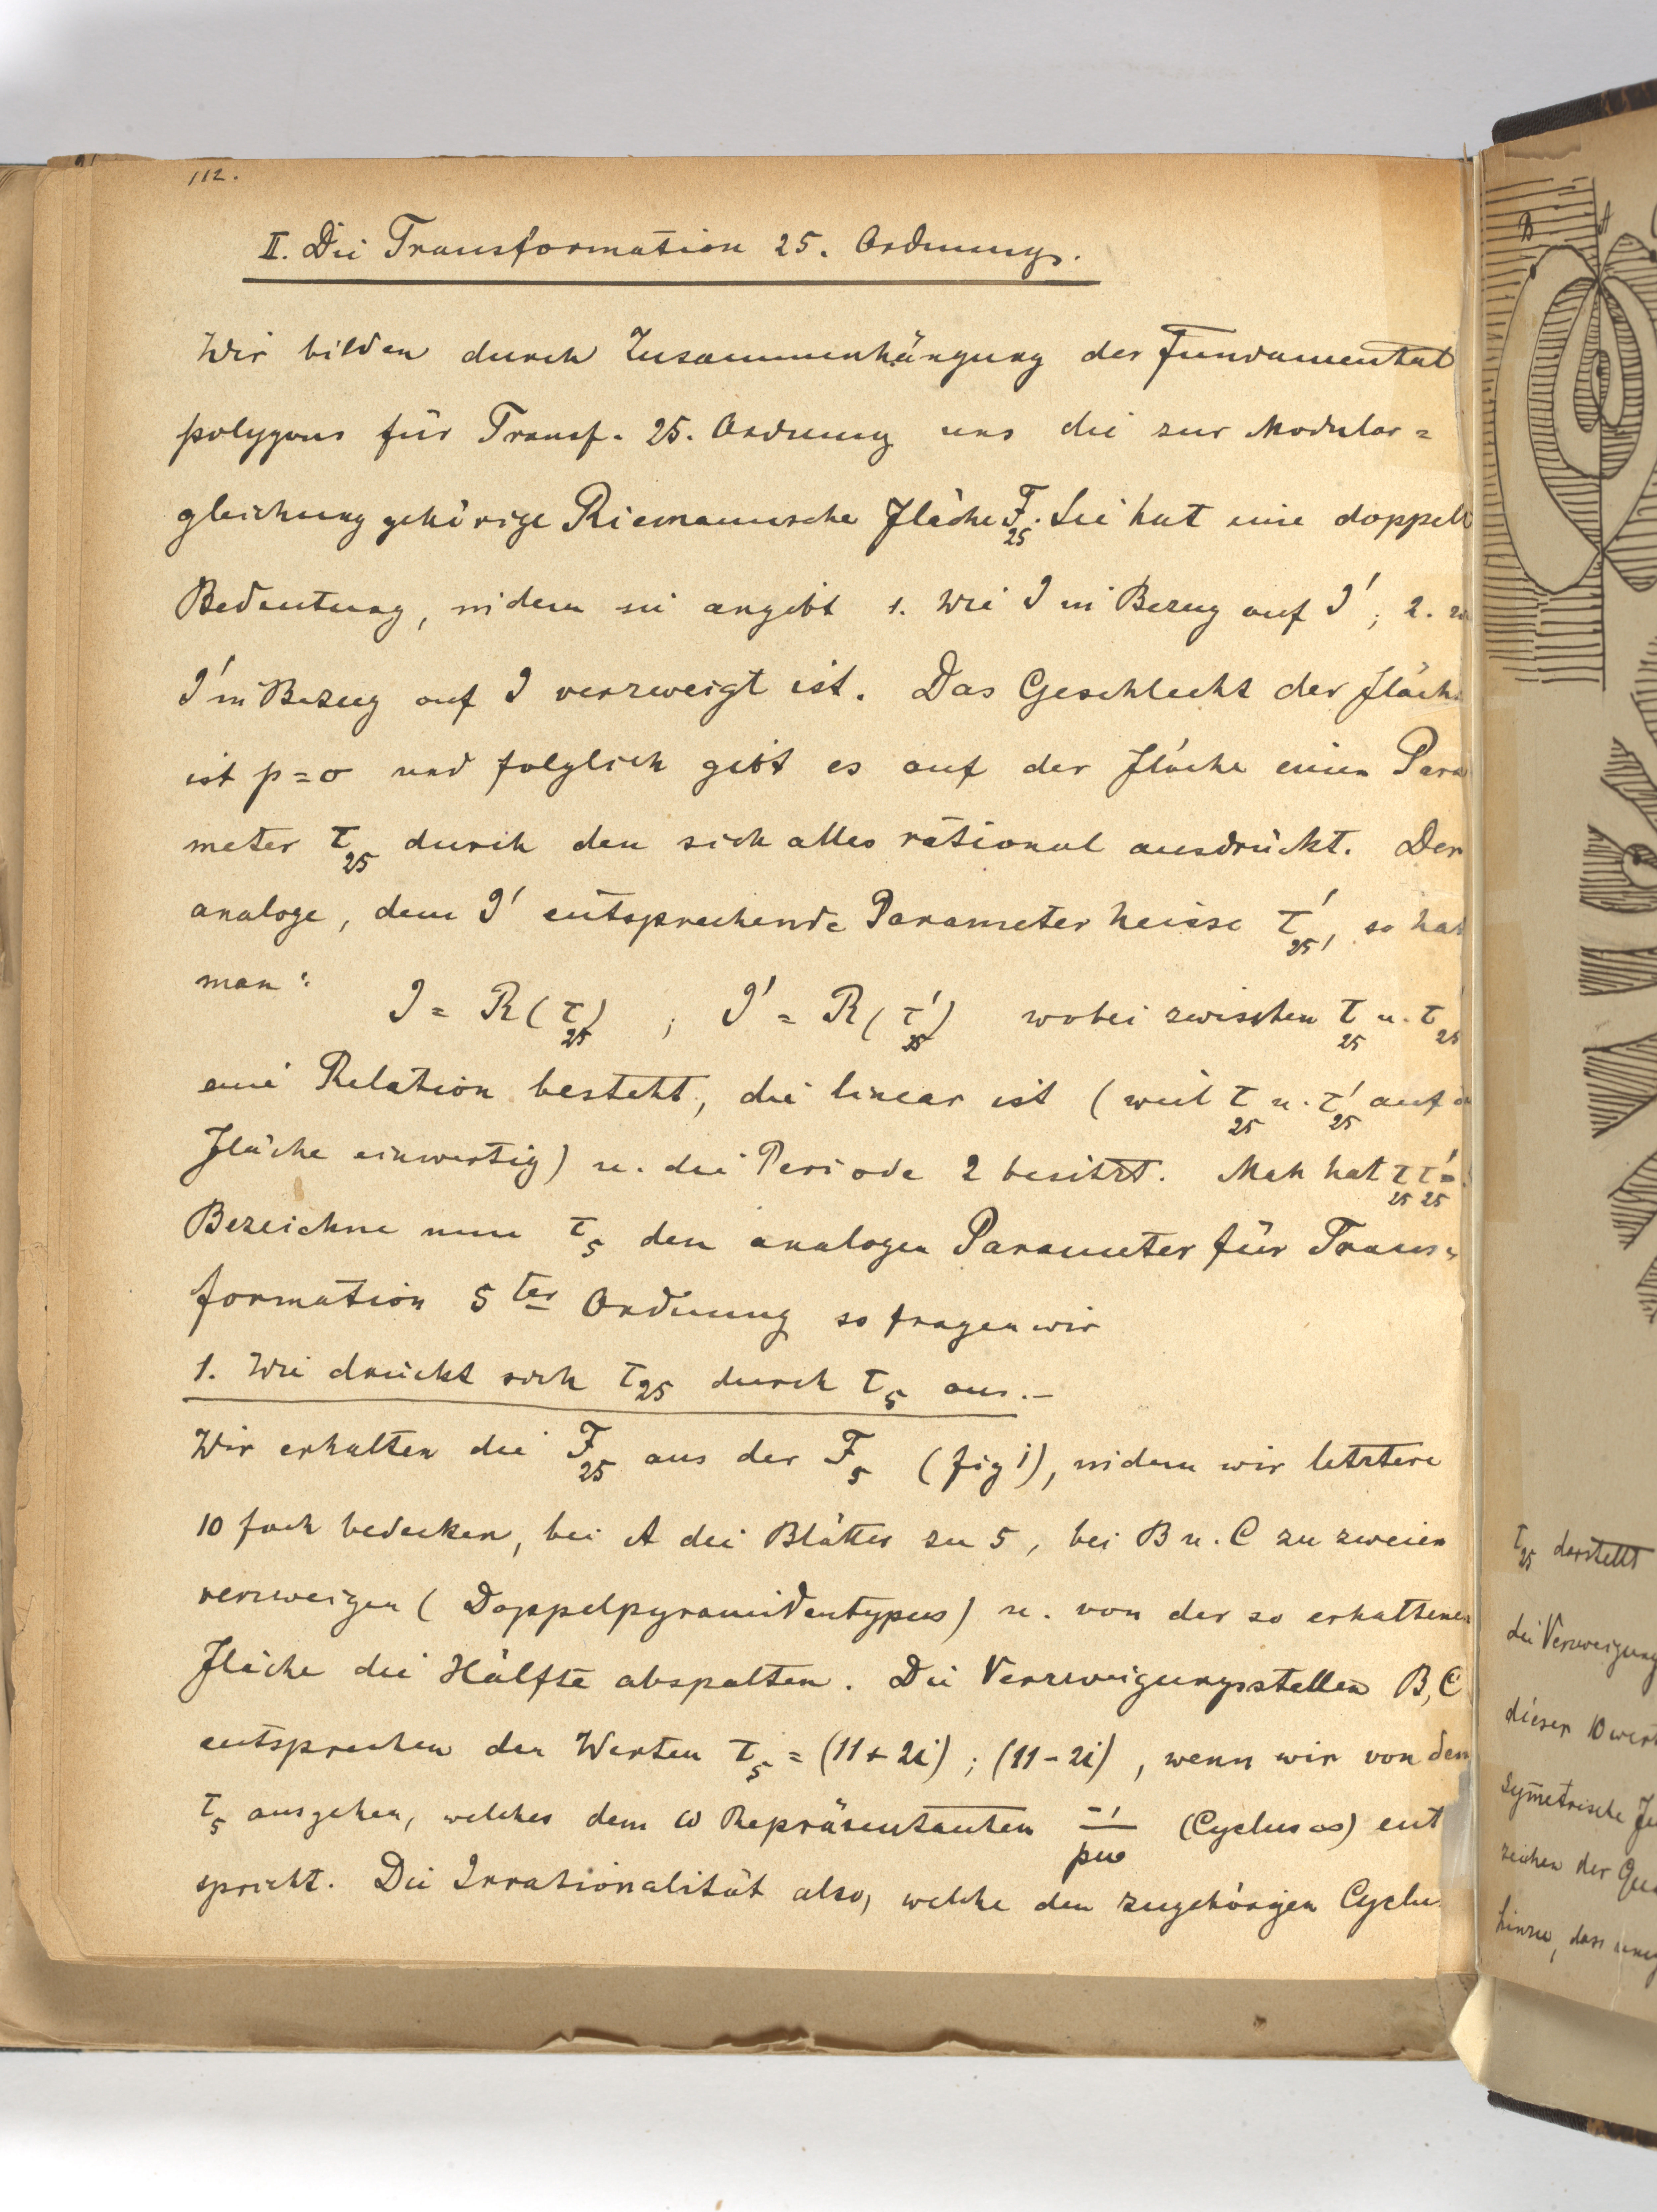 112.
II. Die Transformation 25. Ordnung.
Wir bilden durch Zusammenhängung der Fundamental
polygons für Transf. 25. Ordnung uns die zur Modular=
gleichung gehörige Riemannsche Fläche F₂₅. Sie hat eine doppelt
Bedeutung, indem sie angibt 1. Wie J in Bezug auf J′; 2.
J′ in Bezug auf J verzweigt ist. Das Geschlecht der Fläche
ist p=0 und folglich gibt es auf der Fläche einen Para
meter τ₂₅ durch den sich alles rational ausdrückt. Der
analoge, dem J′ entsprechende Parameter heisse τ′₂₅, so hat
man: J = R(τ₂₅) ; J′ = R(τ′₂₅) wobei zwischen τ₂₅ u. τ′₂₅
eine Relation besteht, die linear ist (weil τ₂₅ u. τ′₂₅ auf
Fläche einwertig) u. die Periode 2 besitzt. Man hat τ₂₅ τ′₂₅ =
Bezeichne nun τ₅ den analogen Parameter für Trans=
formation 5ter Ordnung so fragen wir
1. Wie drückt sich τ₂₅ durch τ₅ aus.–
Wir erhalten die F₂₅ aus der F₅ (fig 1), indem wir letztere
10 fach bedecken, bei A die Blätter zu 5, bei B u. C zu zweien
verzweigen (Doppelpyramidentypus) u. von der so erhaltenen
Fläche die Hälfte abspalten. Die Verzweigungsstellen B, C
entsprechen den Werten τ₅ = (11+2i) ; (11-2i) , wenn wir von dem
τ₅ ausgehen, welches dem ω Repräsentanten (Cyclus ∞) ent
spricht. Die Irrationalität also, welche den zugehörigen Cyclus
B
τ₂₅ darstellt
die Verzweigung
dieser 10 wert
Symetrische
zeichen der
hinzu, dass